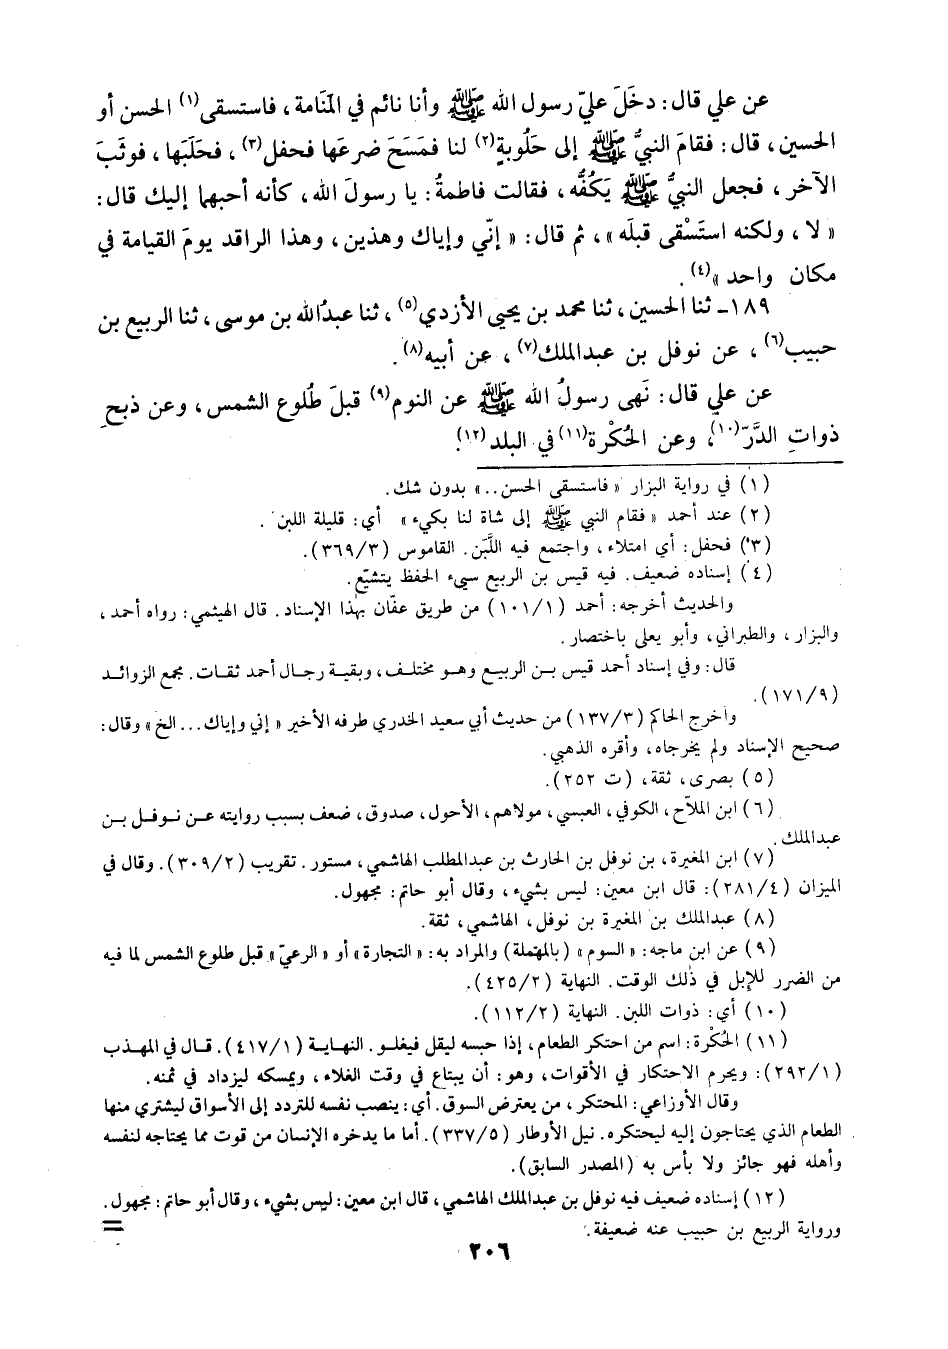 عن علي قال: دخَلَ عليّ رسول الله ﷺ وأنا نائم في المَنَامة، فاستسقى(١) الحسن أو
الحسين، قال: فقامَ النبيُّ ﷺ إلى حَلُوبةٍ(٢) لنا فمَسَحَ ضرعَها فحفل(٣)، فحَلَبَها، فوثَبَ
الآخر، فجعل النبيُّ ﷺ يَكُفُّه، فقالت فاطمةُ: يا رسولَ الله، كأنه أحبهما إليك قال:
«لا، ولكنه استَسْقى قبلَه»، ثم قال: «إنّي وإياك وهذين، وهذا الراقد يومَ القيامة في
مكان واحد»(٤).
١٨٩- ثنا الحسين، ثنا محمد بن يحيى الأزدي(٥)، ثنا عبدُالله بن موسى، ثنا الربيع بن
حبيب(٦)، عن نوفل بن عبدالملك(٧)، عن أبيه(٨).
عن علي قال: نَهى رسولُ الله ﷺ عن النوم(٩) قبلَ طُلوع الشمس، وعن ذبحِ
ذواتِ الدَّرّ(١٠)، وعن الحُكْرة(١١) في البلد(١٢).
(١) في رواية البزار «فاستسقى الحسن..» بدون شك.
(٢) عند أحمد «فقام النبي ﷺ إلى شاة لنا بكيء» أي: قليلة اللبن.
(٣) فحفل: أي امتلاء، واجتمع فيه اللَّبَن. القاموس (٣٦٩/٣).
(٤) إسناده ضعيف. فيه قيس بن الربيع سيىء الحفظ يتشيّع.
والحديث أخرجه: أحمد (١٠١/١) من طريق عفّان بهذا الإسناد. قال الهيثمي: رواه أحمد،
والبزار، والطبراني، وأبو يعلى باختصار.
قال: وفي إسناد أحمد قيس بن الربيع وهو مختلف، وبقية رجال أحمد ثقات. مجمع الزوائد
(١٧١/٩).
وأخرج الحاكم (١٣٧/٣) من حديث أبي سعيد الخدري طرفه الأخير «إني وإياك... الخ» وقال:
صحيح الإسناد ولم يخرجاه، وأقره الذهبي.
(٥) بصرى، ثقة، (ت ٢٥٢).
(٦) ابن الملاّح، الكوفي، العبسي، مولاهم، الأحول، صدوق، ضعف بسبب روايته عن نوفل بن
عبدالملك.
(٧) ابن المغيرة، بن نوفل بن الحارث بن عبدالمطلب الهاشمي، مستور. تقريب (٣٠٩/٢). وقال في
الميزان (٢٨١/٤): قال ابن معين: ليس بشيء، وقال أبو حاتم: مجهول.
(٨) عبدالملك بن المغيرة بن نوفل، الهاشمي، ثقة.
(٩) عن ابن ماجه: «السوم» (بالمهملة) والمراد به: «التجارة» أو «الرعيّ» قبل طلوع الشمس لما فيه
من الضرر للإبل في ذلك الوقت. النهاية (٤٢٥/٢).
(١٠) أي: ذوات اللبن. النهاية (١١٢/٢).
(١١) الحُكْرة: اسم من احتكر الطعام، إذا حبسه ليقل فيغلو. النهاية (٤١٧/١). قال في المهذب
(٢٩٢/١): ويحرم الاحتكار في الأقوات، وهو: أن يبتاع في وقت الغلاء، ويمسكه ليزداد في ثمنه.
وقال الأوزاعي: المحتكر، من يعترض السوق. أي: ينصب نفسه للتردد إلى الأسواق ليشتري منها
الطعام الذي يحتاجون إليه ليحتكره. نيل الأوطار (٣٣٧/٥). أما ما يدخره الإنسان من قوت مما يحتاجه لنفسه
وأهله فهو جائز ولا بأس به (المصدر السابق).
(١٢) إسناده ضعيف فيه نوفل بن عبدالملك الهاشمي، قال ابن معين: ليس بشيء، وقال أبو حاتم: مجهول.
ورواية الربيع بن حبيب عنه ضعيفة. =
٢٠٦